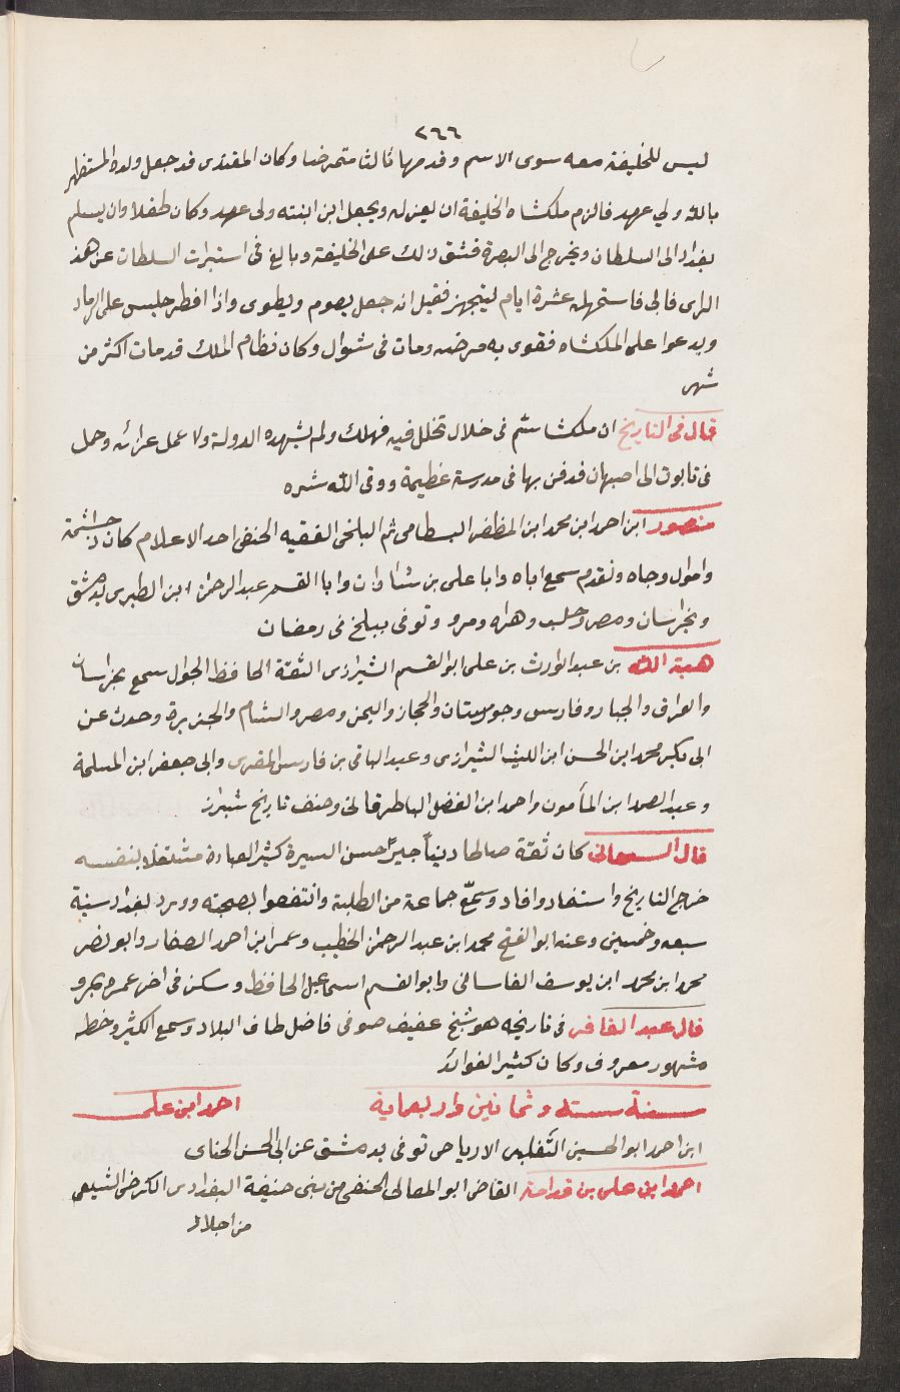 ٢٦٦
ليس للخليفة معه سوى الاسم وقدمها ثالثا متمرضا وكان المقتدى قد جعل ولده المستظهر
بالله ولي عهد فالزم ملكشاه الخليفة ان يعزله ويجعل ابن ابنته ولى عهد وكان طفلا وان يسلم
بغداد الى السلطان ويخرج الى البصرة فشق ذلك على الخليفة وبالغ فى استنرات السلطان عن هذ
الراى فابى فاستمهله عشرة ايام ليتجهز فقيل انه جعل يصوم ويطوى واذا افطر جلس على الرماد
ويدعوا على الملكشاه فقوى به مرضه ومات فى شوال وكان نظام الملك قد مات اكثر من
شهر
قال فى التاريخ ان ملكشا سم فى خلال تخلل فيه فهلك ولم يشهده الدولة ولا عمل عزائه وحمل
فى تابوت الى اصبهان فدفن بها فى مدرسة عظيمة ووقى الله شره
منصور ابن احمد ابن محمد ابن المظفر البسطامى ثم البلخى الفقيه الحنفى احد الاعلام كان ذا حشمة
واموال وجاه وتقدم سمع اباه وابا على بن شاذان وابا القسم عبد الرحمن ابن الطبرى بدمشق
وبخراسان ومصر وحلب وهراه ومرو وتوفى ببلخ فى رمضان
هبة الله بن عبد الوارث بن على ابو القسم الشيرازى الثقة الحافظ الجوال سمع بخراسان
والعراق والجبار وفارس وخوزستان والحجاز واليمن ومصر والشام والجزيرة وحدث عن
ابى بكر محمد ابن الحسن ابن الليث الشيرازى وعبد الباقى بن فارس المقرى وابى جعفر ابن المسلمة
وعبد الصمد ابن المأمون واحمد ابن الفضل الباطرقانى وصنف تاريخ شيراز
قال السمعانى كان ثقة صالحا دينا خيرا حسن السيرة كثير العبادة مشتغلا بنفسه
خرج التاريخ واستفاد وافاد وسمّع جماعة من الطلبة وانتفعوا بصحبته وورد بغداد سنة
سبعه وخمسين وعنه ابو الفتح محمد ابن عبد الرحمن الخطيب وعمر ابن احمد الصفار وابو نضر
محمد ابن محمد ابن يوسف الفاسانى وابو القسم اسماعيل الحافظ وسكن فى اخر عمره بمرو
قال عبد الغافر فى تاريخه هو شيخ عفيف صوفى فاضل طاف البلاد وسمع الكثير وخطه
مشهور معروف وكان كثير الفوائد
سنة ستة وثمانين واربعماية احمد ابن على
ابن احمد ابو الحسين التغلبى الارياحى توفى بدمشق عن ابى الحسن الحناى
احمد ابن على بن قدامة القاضى ابو المعالى الحنفى من بنى حنيفة البغدادى الكرخى الشيعى
من اجلاء